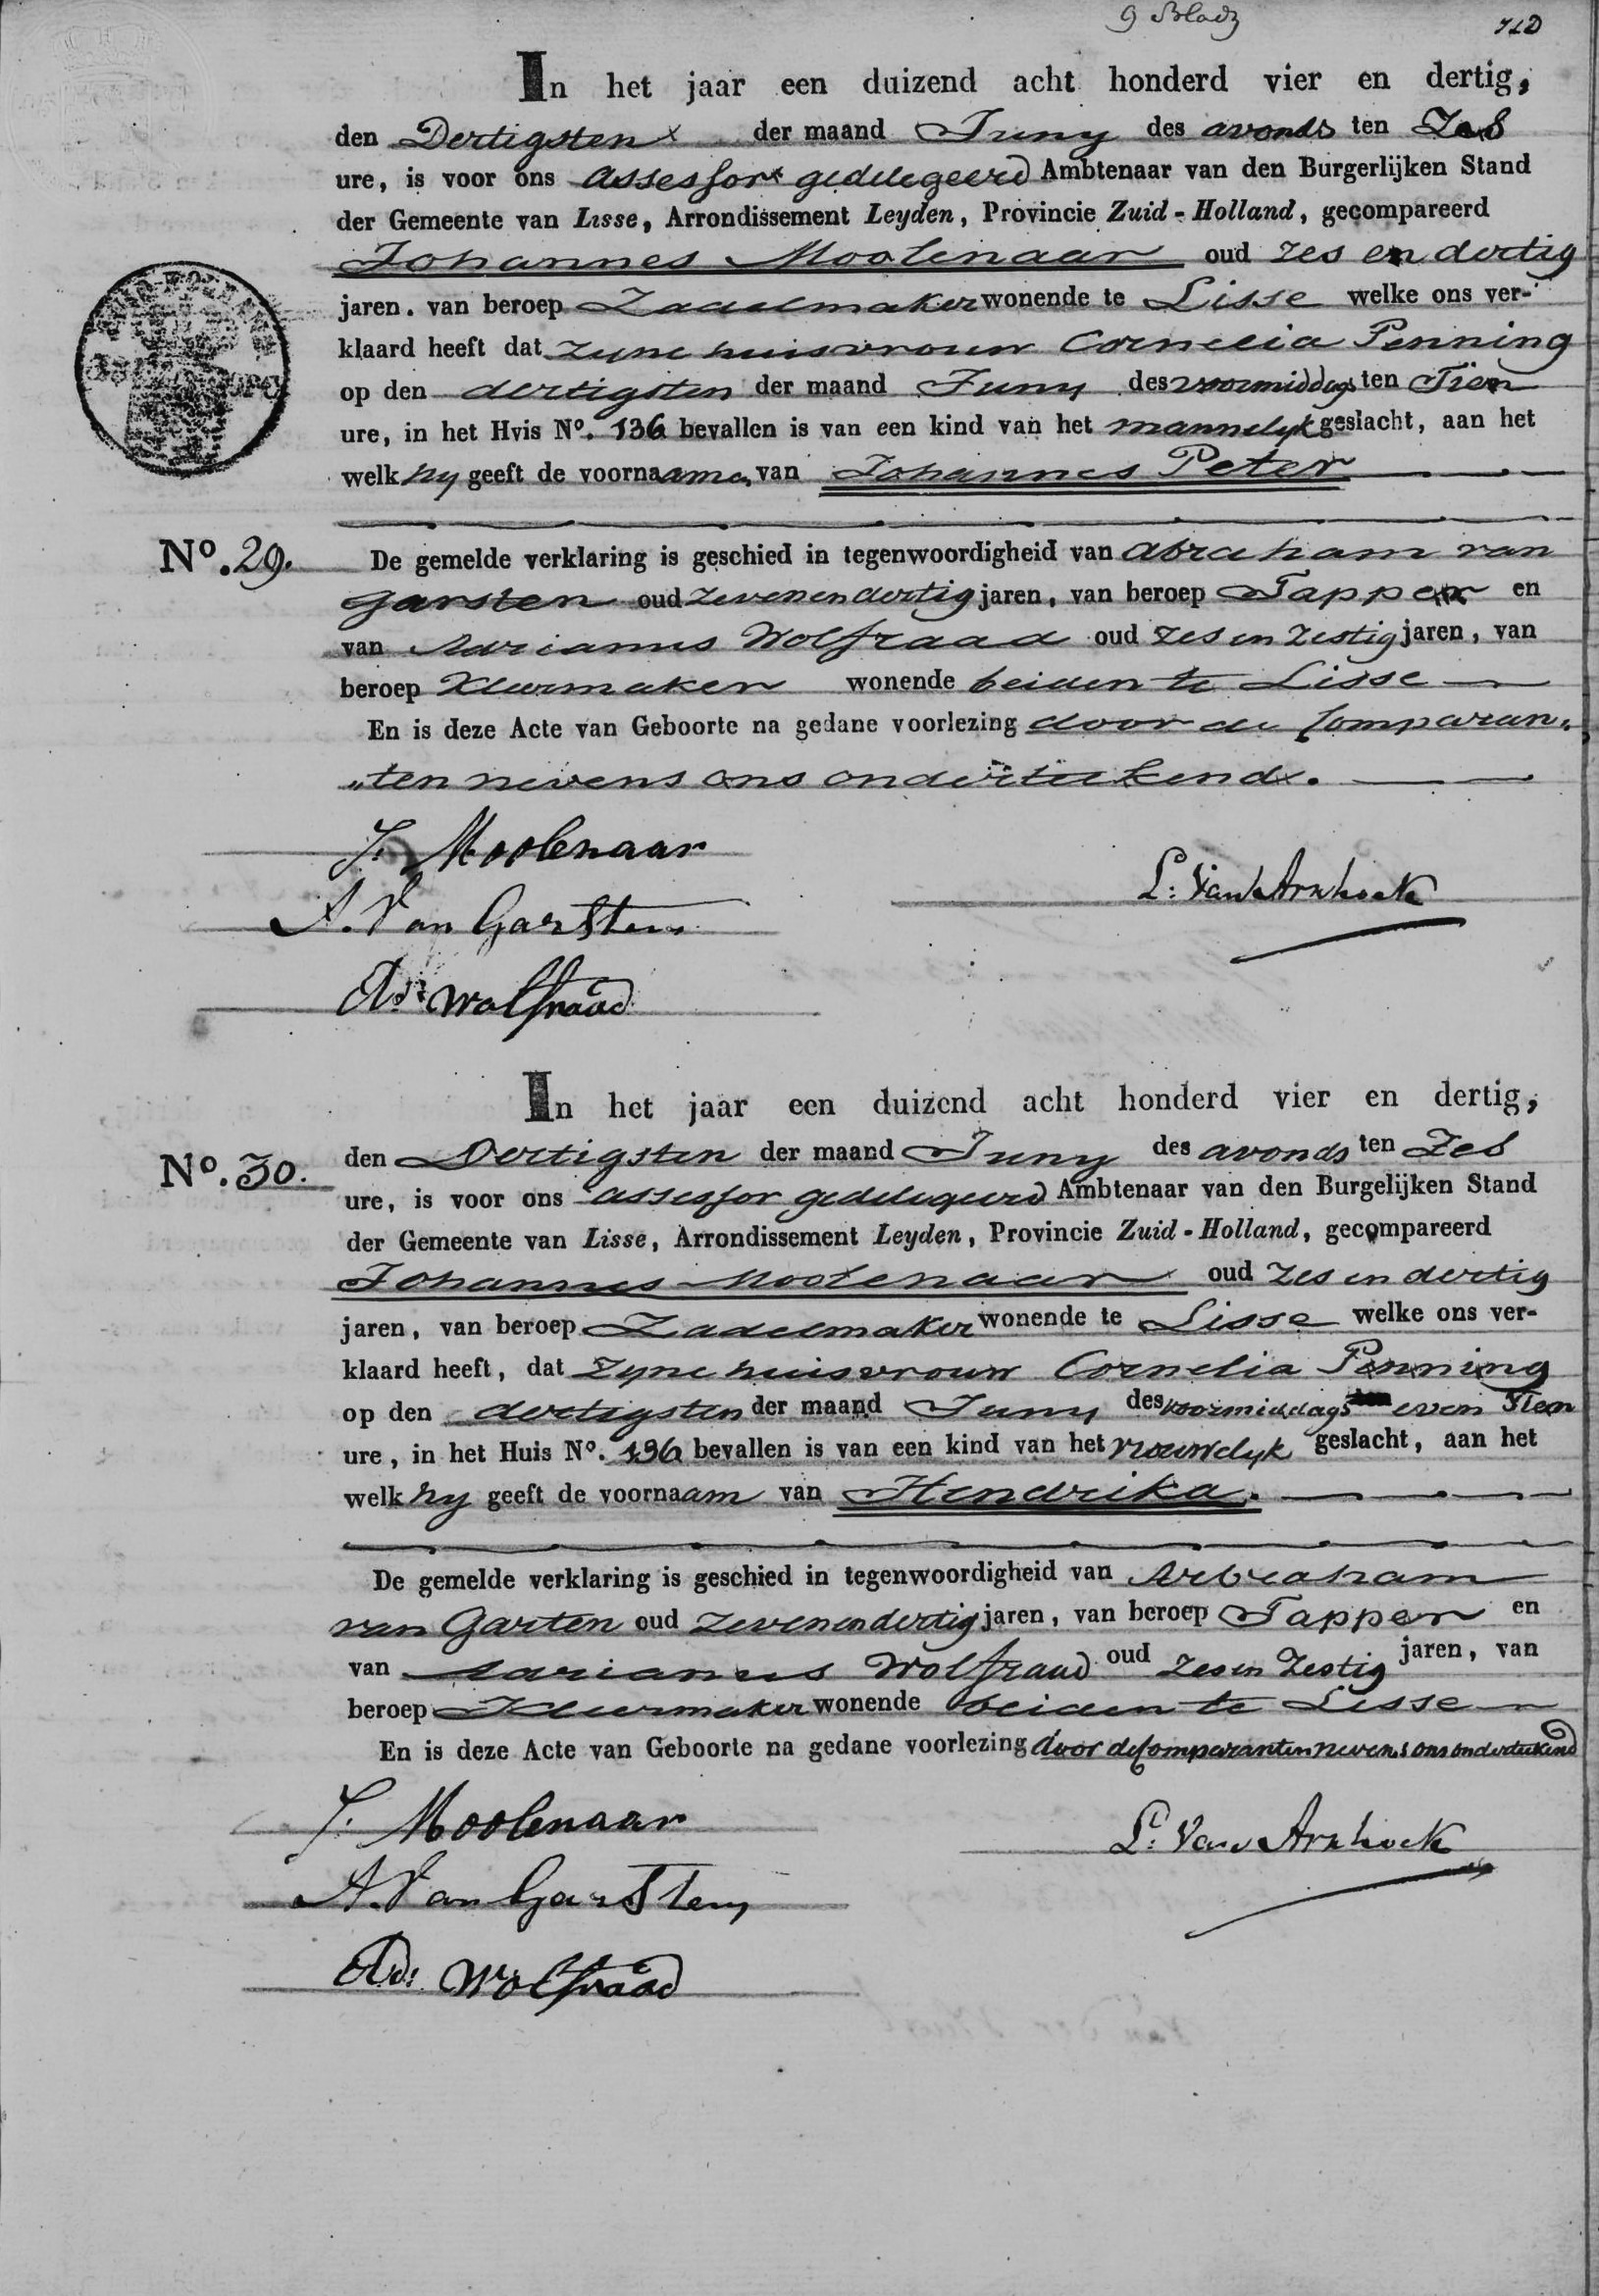 9 Bladz
In het jaar een duizend acht honderd vier en dertig,
den Dertigsten der maand Juny des avonds ten Zes
ure, is voor ons assessor gedelegeerd Ambtenaar van den Burgerlijken Stand
der Gemeente van Lisse, Arrondissement Leyden, Provincie Zuid-Holland, gecompareerd
Johannes Moolenaar oud zes en dertig
jaren. van beroep Zadelmaker wonende te Lisse welke ons ver-
klaard heeft dat zyne huisvrouw Cornelia Penning
op den dertigsten der maand Juny des voormiddags ten Tien
ure, in het Hvis No. 136 bevallen is van een kind van het mannelyk geslacht, aan het
welk hy geeft de voornaame van Johannes Peter
No. 29. De gemelde verklaring is geschied in tegenwoordigheid van Abraham van
Garsten oud zevenendertig jaren, van beroep Tapper en
van Adrianus Wolfraad oud zes en zestig jaren, van
beroep Kleermaker wonende beiden te Lisse
En is deze Acte van Geboorte na gedane voorlezing door de Comparan-
„ten nevens ons onderteekend.
J. Moolenaar
L: Van Arnhoek
A. Van Garsten
Ad: Wolfraad
In het jaar een duizend acht honderd vier en dertig,
No. 30. den Dertigsten der maand Juny des avonds ten Zes
ure, is voor ons assessor gedelegeerd Ambtenaar van den Burgelijken Stand
der Gemeente van Lisse, Arrondissement Leyden, Provincie Zuid-Holland, gecompareerd
Johannes Moolenaar oud zes en dertig
jaren, van beroep Zadelmaker wonende te Lisse welke ons ver-
klaard heeft, dat zyne huisvrouw Cornelia Penning
op den dertigsten der maand Juny des voormiddags even Tien
ure, in het Huis No. 136 bevallen is van een kind van het vrouwelyk geslacht, aan het
welk hy geeft de voornaam van Hendrika.
De gemelde verklaring is geschied in tegenwoordigheid van Abraham
van Garten oud zevenendertig jaren, van beroep Tapper en
van Adrianus Wolfraad oud zes en zestig jaren, van
beroep Kleermaker wonende beiden te Lisse
En is deze Acte van Geboorte na gedane voorlezing door de Comparanten nevens ons onderteekend
J. Moolenaar
L: Van Arnhoek
A. Van Garsten
Ad: Wolfraad